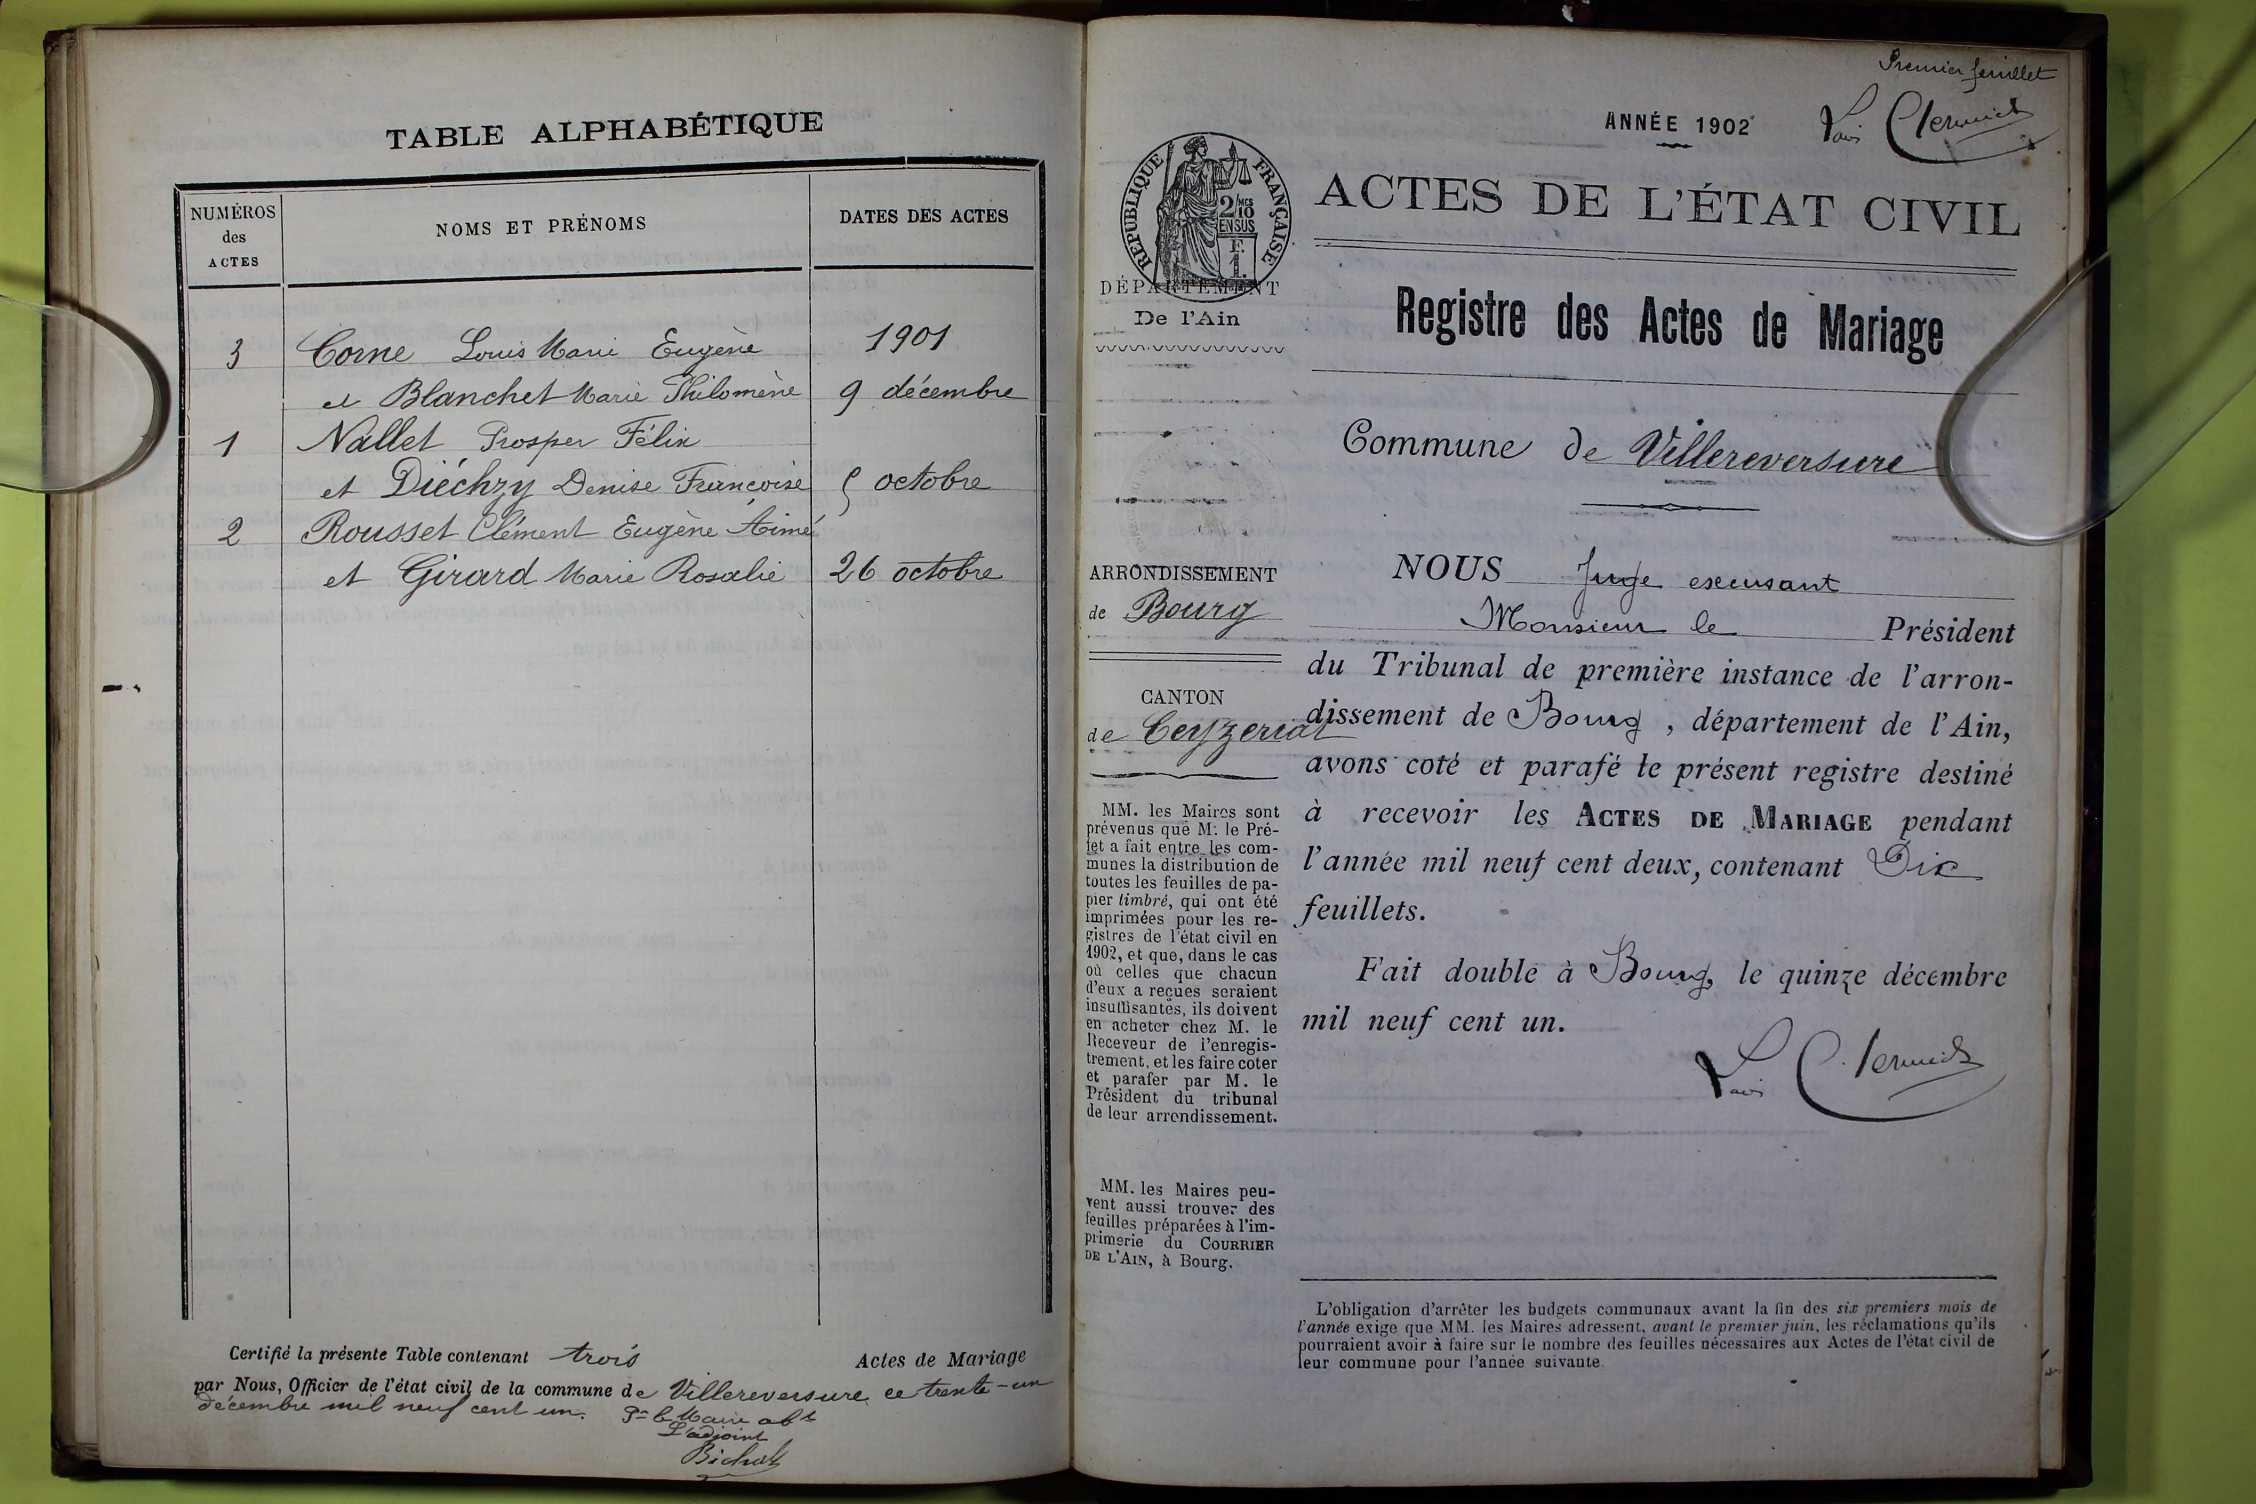 TABLE ALPHABÉTIQUE
NUMÉROS
des
ACTES
NOMS ET PRÉNOMS
DATES DES ACTES
3 Corne Louis Marie Eugène 1901
et Blanchet Marie Philomène 9 décembre
1 Nallet Prosper Félix
et Diéchzy Denise Françoise 5 octobre
2 Rousset Clément Eugène Aimé
et Girard Marie Rosalie 26 octobre
Certifié la présente Table contenant trois Actes de Mariage
par Nous, Officier de l'état civil de la commune de Villereversure ce trente-un
décembre mil neuf cent un. Pr le Maire abt
L'adjoint
Bichat
Premier feuillet
ANNÉE 1902
RÉPUBLIQUE FRANÇAISE
2/10 MES
EN SUS
F.
1.
ACTES DE L'ÉTAT CIVIL
DÉPARTEMENT
De l'Ain
Registre des Actes de Mariage
Commune de Villereversure
ARRONDISSEMENT
de Bourg
CANTON
de Ceyzériat
MM. les Maires sont
prévenus que M. le Pré-
fet a fait entre les com-
munes la distribution de
toutes les feuilles de pa-
pier timbré, qui ont été
imprimées pour les re-
gistres de l'état civil en
1902, et que, dans le cas
où celles que chacun
d'eux a reçues seraient
insuffisantes, ils doivent
en acheter chez M. le
Receveur de l'enregis-
trement, et les faire coter
et parafer par M. le
Président du tribunal
de leur arrondissement.
MM. les Maires peu-
vent aussi trouver des
feuilles préparées à l'im-
primerie du COURRIER
DE L'AIN, à Bourg.
NOUS Juge excusant
Monsieur le Président
du Tribunal de première instance de l'arron-
dissement de Bourg, département de l'Ain,
avons coté et parafé le présent registre destiné
à recevoir les ACTES DE MARIAGE pendant
l'année mil neuf cent deux, contenant Dix
feuillets.
Fait double à Bourg, le quinze décembre
mil neuf cent un.
L'obligation d'arrêter les budgets communaux avant la fin des six premiers mois de
l'année exige que MM. les Maires adressent, avant le premier juin, les réclamations qu'ils
pourraient avoir à faire sur le nombre des feuilles nécessaires aux Actes de l'état civil de
leur commune pour l'année suivante.